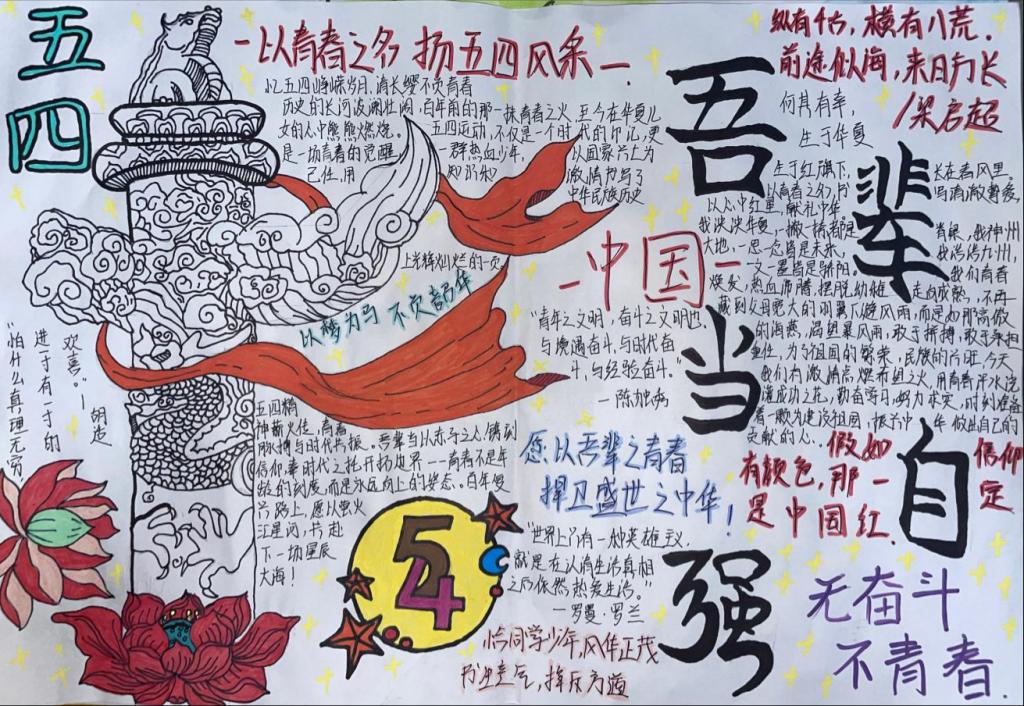 五四
以青春之名 扬五四风采
忆五四峥嵘岁月,请长缨不负青春
历史的长河波澜壮阔,百年前的那一抹青春之火,至今在华夏儿
女的心中熊熊燃烧。五四运动,不仅是一个时代的印记,更
是一场青春的觉醒 一群热血少年,以国家兴亡为
己任,用 知识和 激情书写了
中华民族历史
上光辉灿烂的一页
以梦为马 不负韶华
"怕什么真理无穷,
进寸有一寸的
欢喜。"—胡适
五四精
神薪火传,青春
脉搏与时代共振。吾辈当以赤子之心,铸刻
信仰,乘时代之托,开拓边界——青春不是年
龄的刻度,而是永远向上的姿态。百年复
兴路上,愿以萤火
汇星河,共赴
下一场星辰
大海!
54
中国
"青年之文明,奋斗之文明也,
与境遇奋斗,与时代奋
斗,与经验奋斗。"
愿以吾辈之青春
捍卫盛世之中华!
"世界上只有一种英雄主义,
就是在认清生活真相
之后依然热爱生活。"
—罗曼·罗兰
恰同学少年,风华正茂
书生意气,挥斥方遒
吾辈当自强
纵有千古,横有八荒.
前途似海,来日方长
/梁启超
何其有幸,
生于华夏
生于红旗下, 长在春风里。
以青春之名,书写满激尊爱,
以心中红星,献礼中华
我泱泱华夏,一撇一捺都是脊梁,我神州
大地,一思一念皆是未来,我浩浩九州,
一文一墨皆是骄阳。我们青春
焕发,热血沸腾,摆脱幼稚 走向成熟,不再
藏到父母宽大的羽翼下避风雨,而是如那高傲
的海燕,渴望暴风雨,敢于拼搏,敢于承担
重任,为了祖国的繁荣,民族的兴旺,今天
我们有激情点燃希望之火,用青春汗水浇
灌成功之花,勤奋学习,努力求实,时刻准备
着一颗为建设祖国,振兴中华 做出自己的
贡献的心.
假如 信仰
有颜色,那一定
是中国红.
无奋斗
不青春.